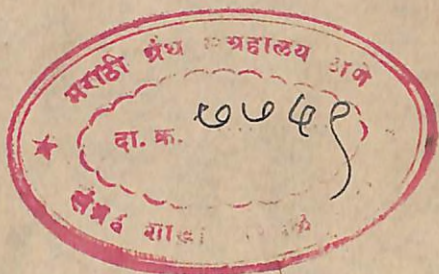 मराठी ग्रंथ संग्रहालय ठाणे
दा. क्र. ७७५९
शाखा